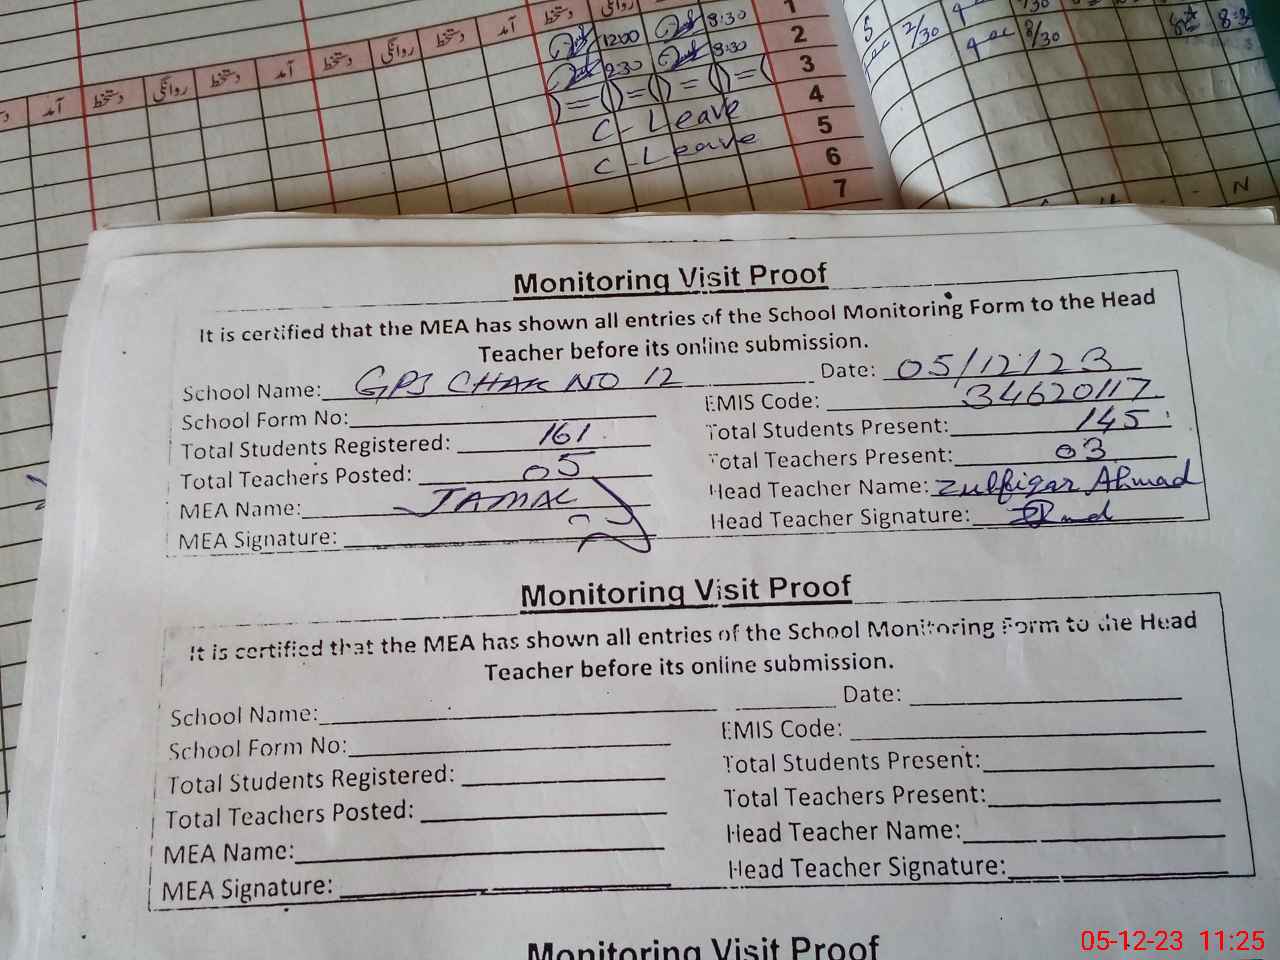 دستخط روانگی دستخط آمد 1
12:00 8:30 2
2:30 8:30 3
4
C-Leave 5
C-Leave 6
7
آمد دستخط روانگی دستخط آمد دستخط روانگی دستخط آمد
2/30 8/30
N
Monitoring Visit Proof
It is certified that the MEA has shown all entries of the School Monitoring Form to the Head
Teacher before its online submission.
School Name: GPS CHAK NO 12 Date: 05/12/23
School Form No: EMIS Code: 34620117
Total Students Registered: 161 Total Students Present: 145
Total Teachers Posted: 05 Total Teachers Present: 03
MEA Name: JAMAL Head Teacher Name: Zulfiqar Ahmad
MEA Signature: Head Teacher Signature:
Monitoring Visit Proof
It is certified that the MEA has shown all entries of the School Monitoring Form to the Head
Teacher before its online submission.
School Name: Date:
School Form No: EMIS Code:
Total Students Registered: Total Students Present:
Total Teachers Posted: Total Teachers Present:
MEA Name: Head Teacher Name:
MEA Signature: Head Teacher Signature:
Monitoring Visit Proof
05-12-23 11:25